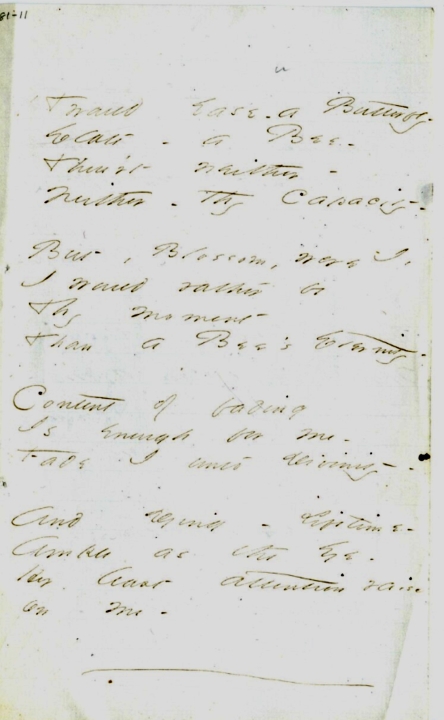 81-11
T'would ease - a Butterfly -
Elate - a Bee -
Thou'rt neither -
Neither - thy Capacity -
But, Blossom, were I,
I would rather be
Thy moment
Than a Bee's Eternity -
Content of fading
Is enough for me -
Fade I unto Divinity -
And Dying - Lifetime -
Ample as the Eye -
Her least attention raise
on me -